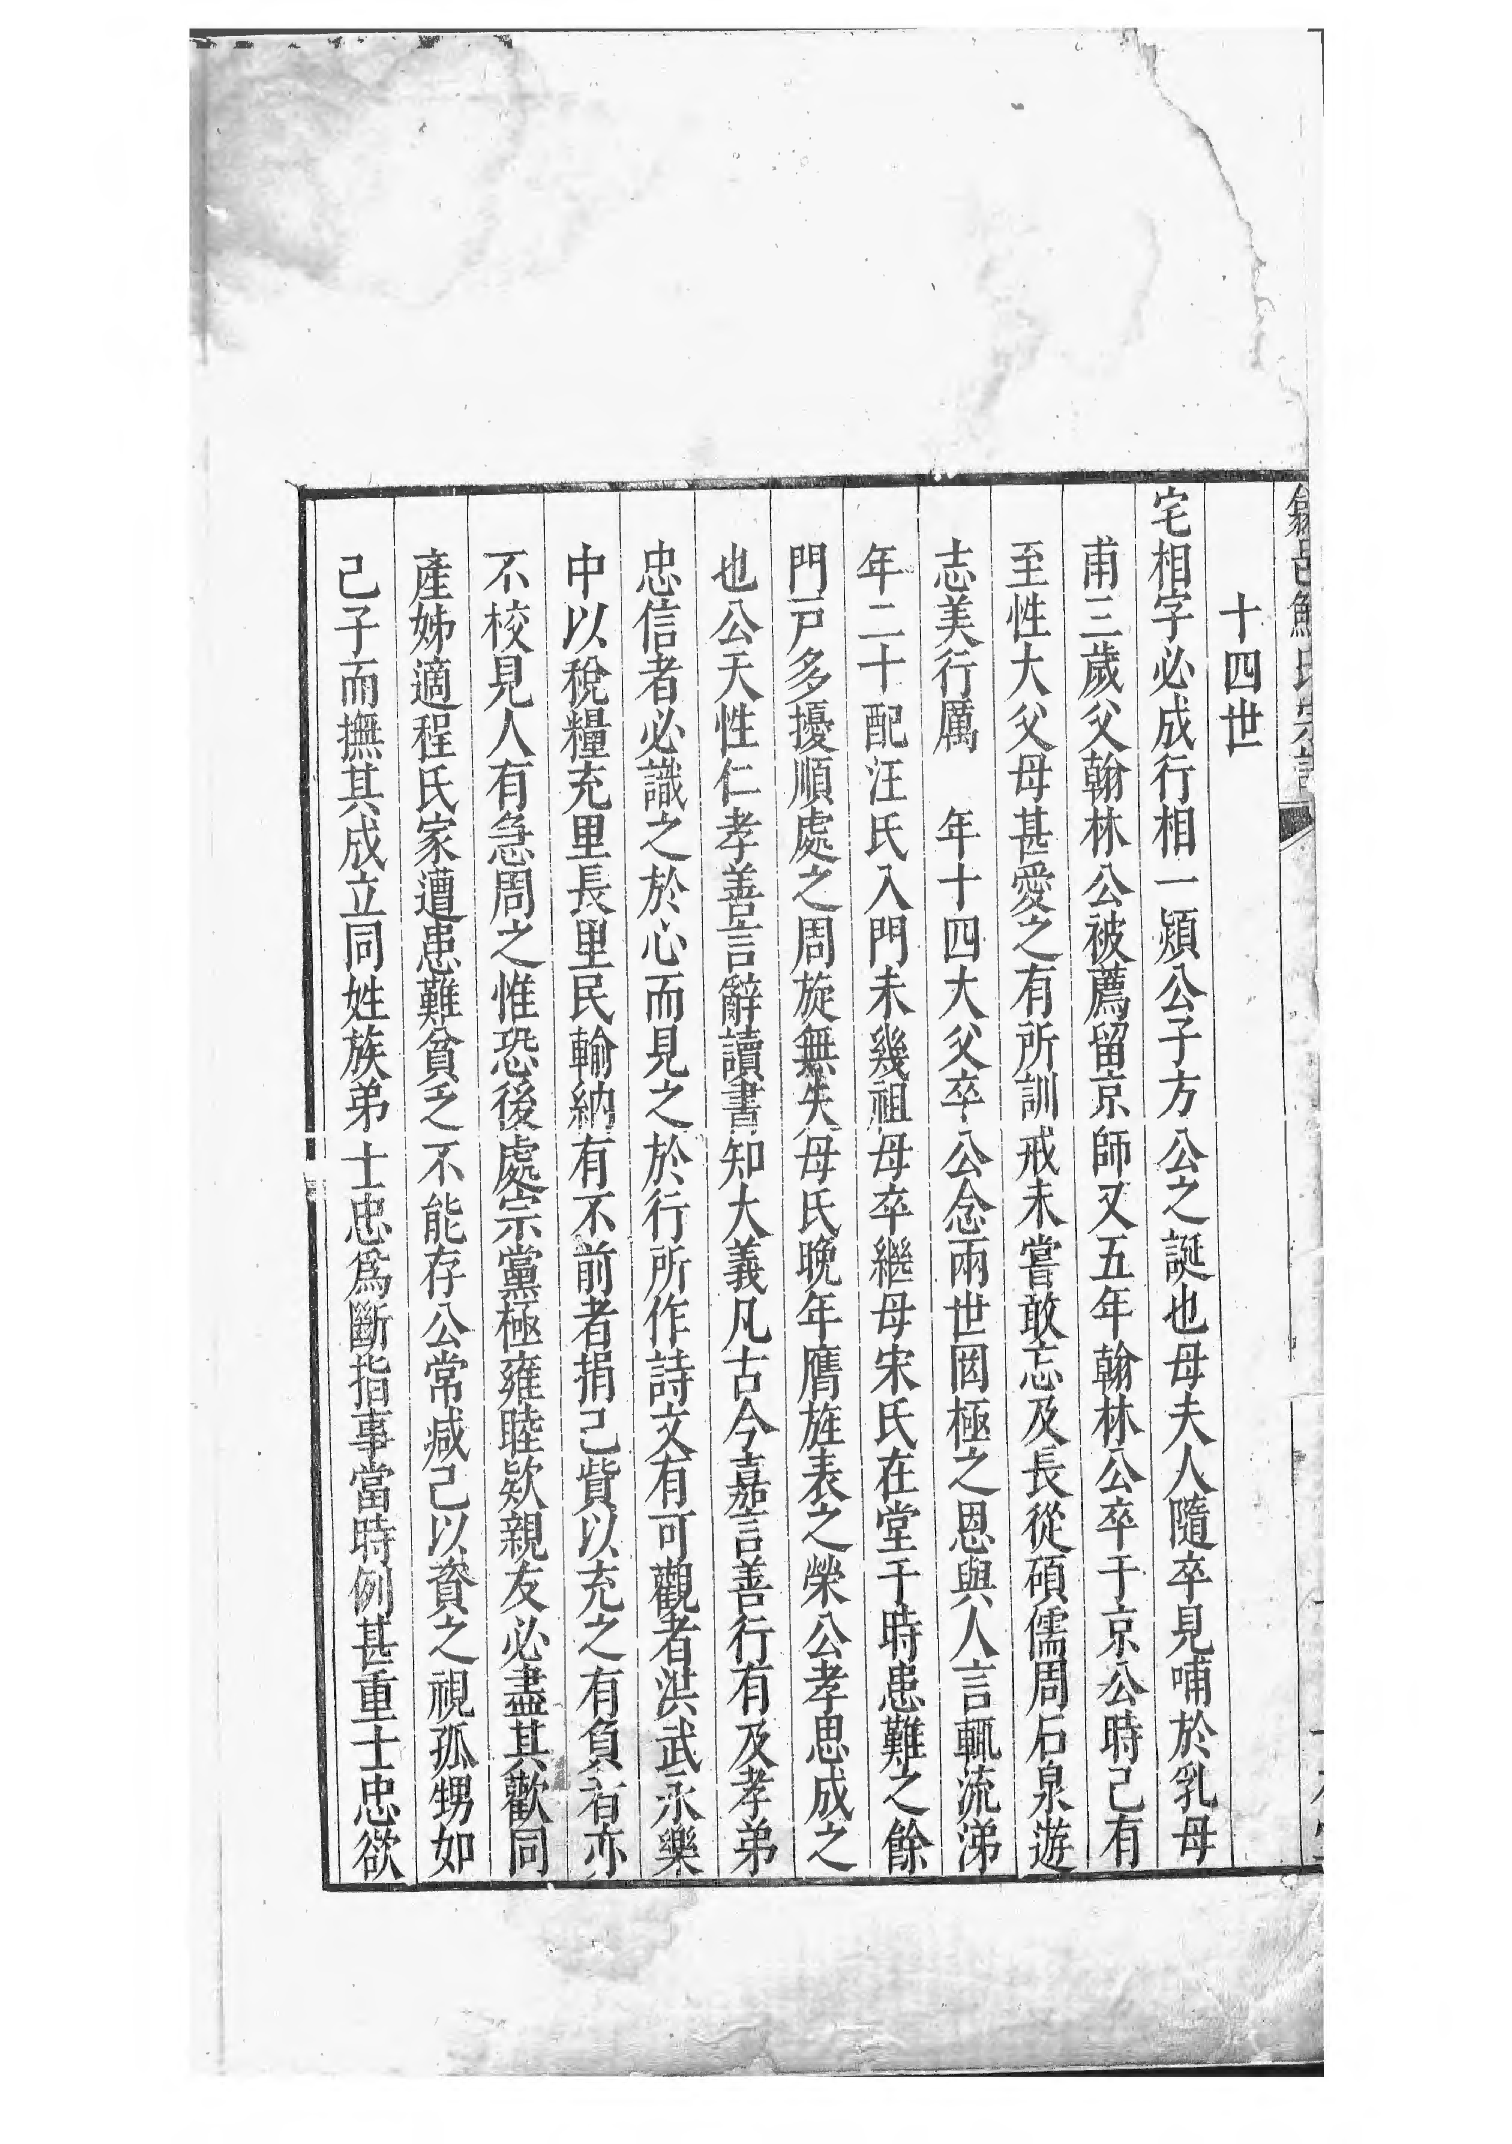 十四世
宅相字必成行相一潁公子方公之誕也母夫人隨卒見哺於乳母
甫三歲父翰林公被薦留京師又五年翰林公卒于京公時己有
至性大父母甚愛之有所訓戒未嘗敢忘及長從碩儒周石泉遊
志美行厲　年十四大父卒公念兩世罔極之恩與人言輒流涕
年二十配汪氏入門未幾祖母卒繼母宋氏在堂于時患難之餘
門戸多擾順處之周旋無失母氏晚年膺旌表之榮公孝思成之
也公天性仁孝善言辭讀書知大義凡古今嘉言善行有及孝弟
忠信者必識之於心而見之於行所作詩文有可觀者洪武永樂
中以稅糧充里長里民輸納有不前者捐己貲以充之有負者亦
不校見人有急周之惟恐後處宗黨極雍睦欵親友必盡其歡同
產姊適程氏家遭患難貧乏不能存公常减己以資之視孤甥如
己子而撫其成立同姓族弟士忠爲斷指事當時例甚重士忠欲